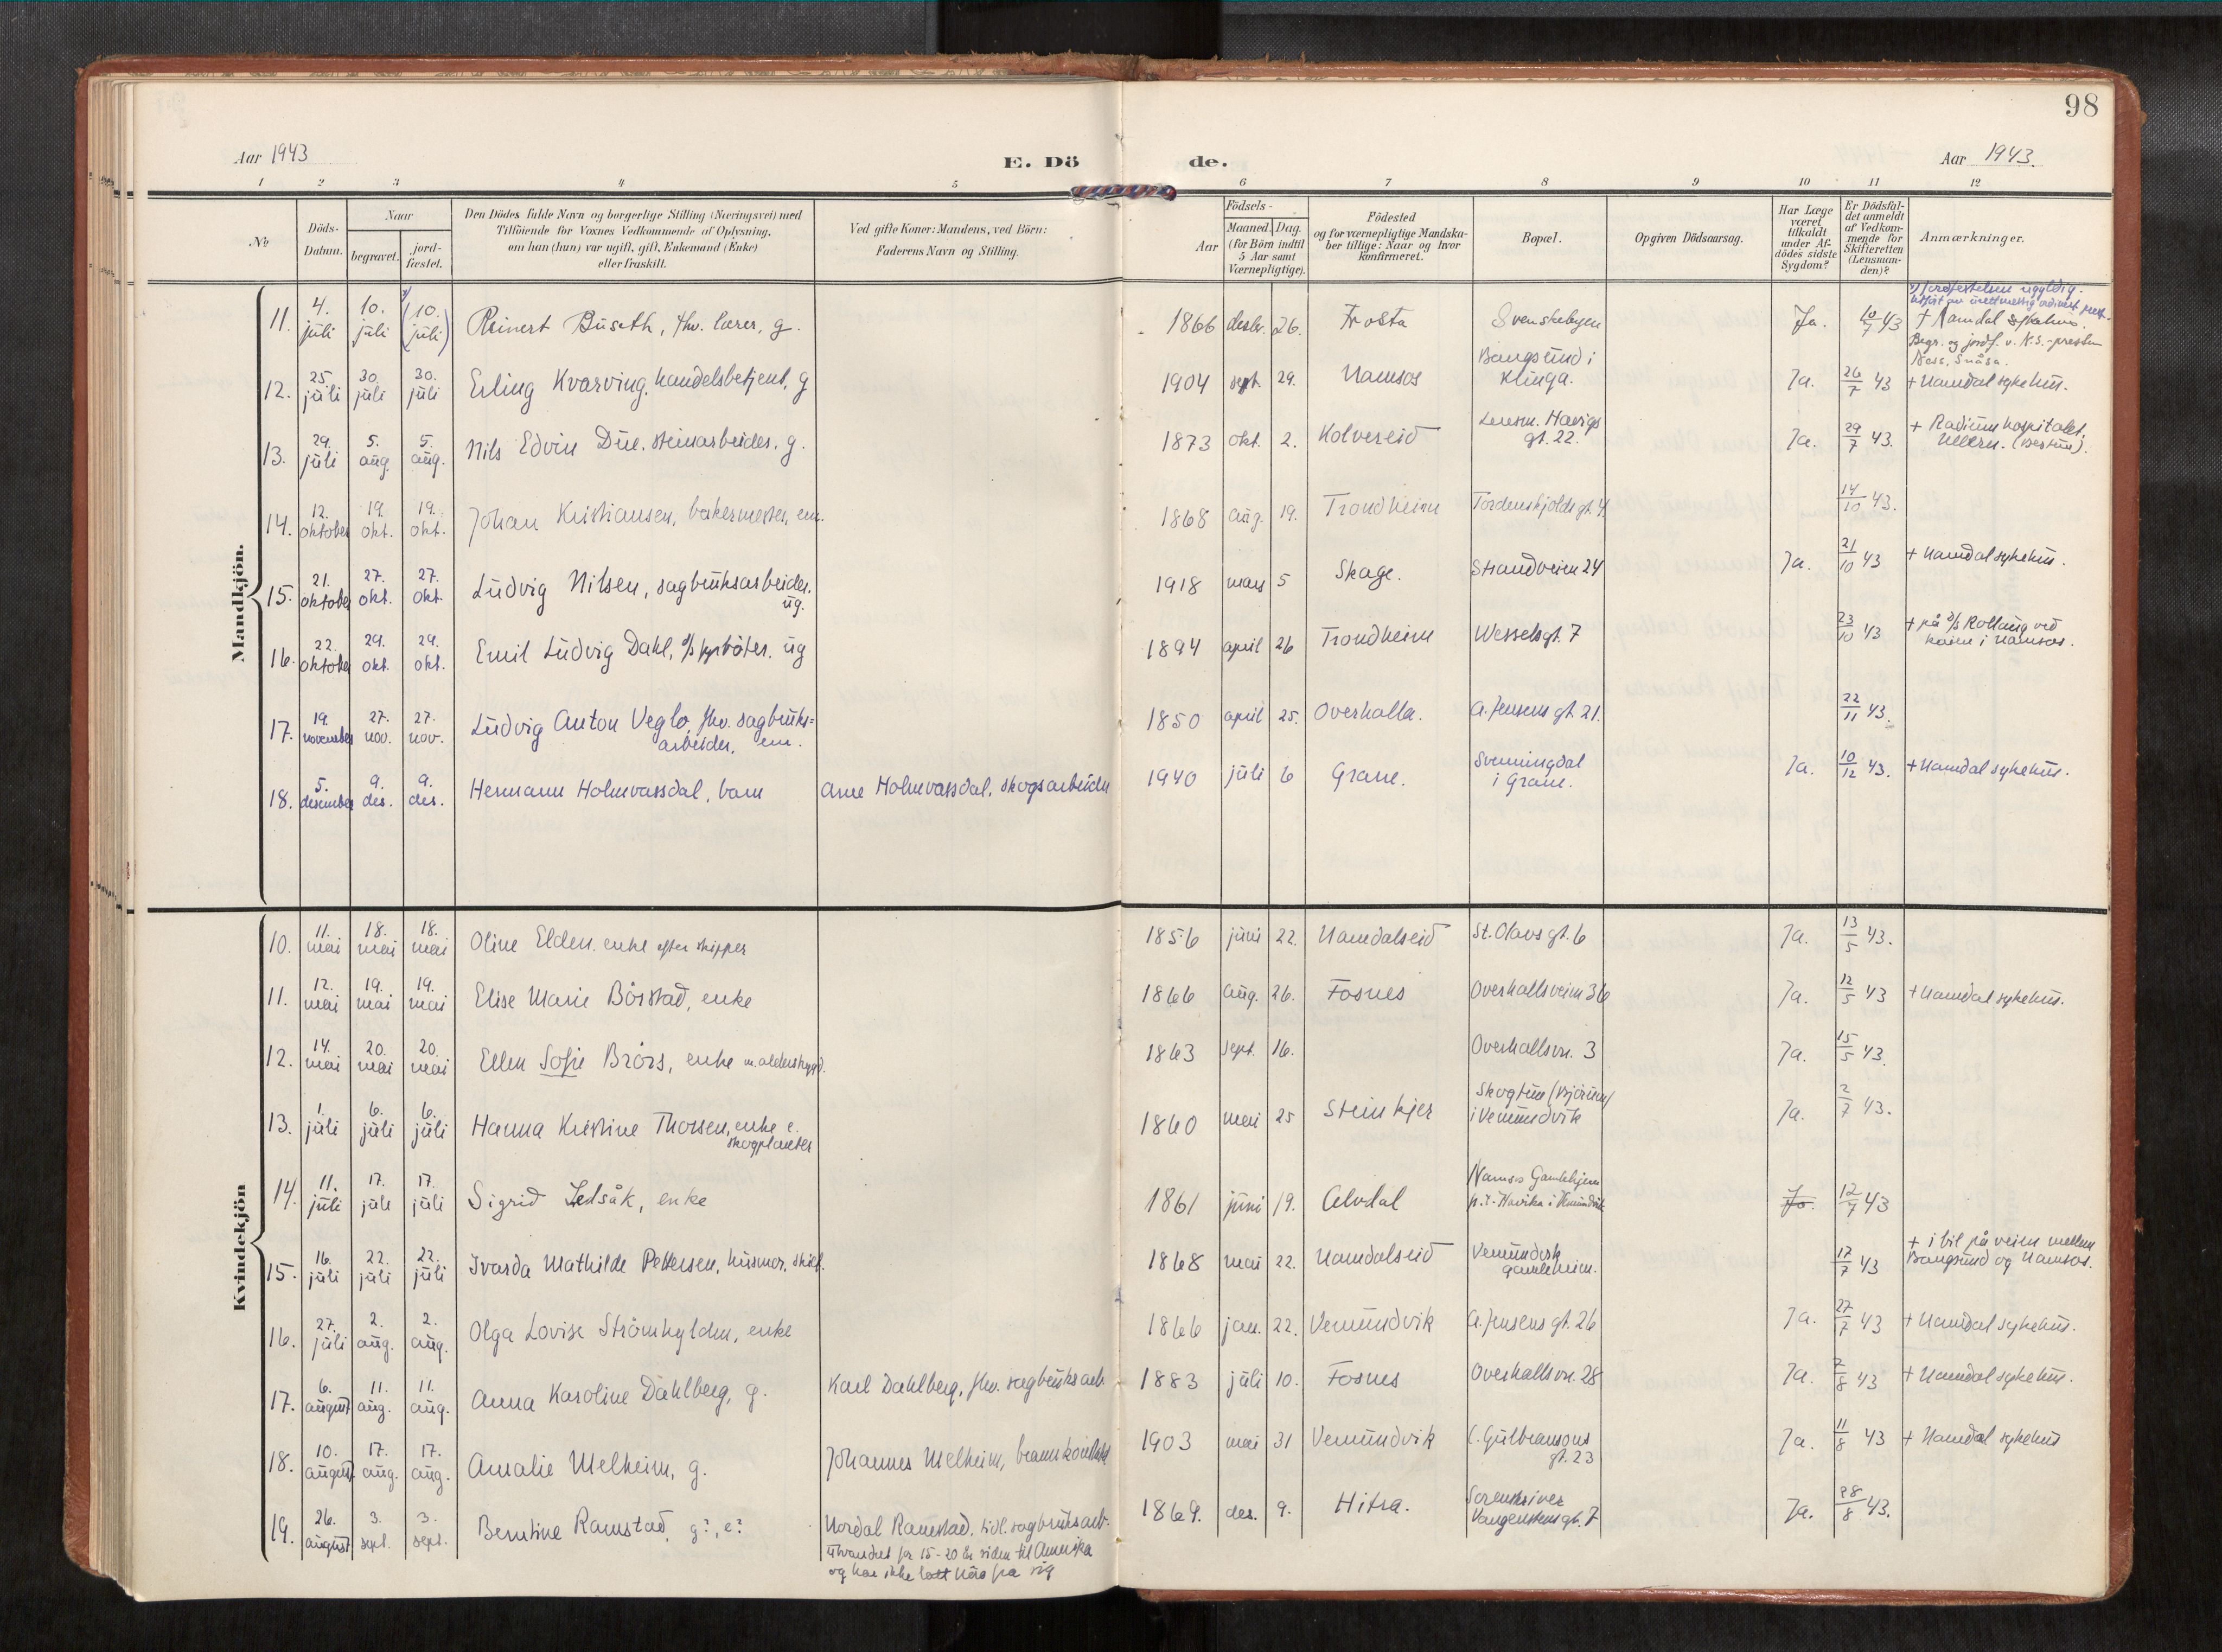 98
Aar 1943
E. Dö de.
Aar 1943.
1 2 3 4 5 6 7 8 9 10 11 12
№
Döds-Datum.
Naar
begravet.
jord-fæstet.
Den Dödes fulde Navn og borgerlige Stilling (Næringsvei) med
Tilföiende for Voxnes Vedkommende af Oplysning,
om han (hun) var ugift, gift, Enkemand (Enke)
eller fraskilt.
Ved gifte Koner: Mandens, ved Börn:
Faderens Navn og Stilling.
Födsels-
Aar
Maaned. Dag.
(for Börn indtil
5 Aar samt
Værnepligtige).
Födested
og for værnepligtige Mandska-
ber tillige: Naar og hvor
konfirmeret.
Bopæl.
Opgiven Dödsaarsag.
Har Læge
været
tilkaldt
under Af-
dödes sidste
Sygdom?
Er Dödsfal-
det anmeldt
af Vedkom-
mende for
Skifteretten
(Lensman-
den)?
Anmærkninger.
Mandkjön.
11. 4. juli 10. juli (10. juli) Reinert Buseth, fhv. lærer, g. 1866 desbr. 26. Frosta Svenskebyen Ja. 10/7 43
Jordfestelsen ugyldig.
+ Namdal sykehus.
Begr. og jordf. v. N.S.-presten
Snåsa.
12. 25. juli 30. juli 30. juli Erling Kvarving, handelsbetjent, g 1904 sept. 29. Namsos Bangsund i Klinga. Ja. 26/7 43 + Namdal sykehus.
13. 29. juli 5. aug 5. aug. Nils Edvin Due, steinarbeider, g. 1873 okt. 2. Kolvereid Lensm. Havigs gt. 22. Ja. 29/7 43. + Radiumhospitalet, Ullern. (Bestum).
14. 12. oktober 19. okt. 19. okt. Johan Kristiansen, bakermester, em. 1868 aug. 19. Trondheim Tordenskjolds gt. 4. 14/10 43.
15. 21. oktober 27. okt. 27. okt. Ludvig Nilsen, sagbruksarbeider, ug. 1918 mars 5 Skage. Strandveien 24 Ja. 21/10 43 + Namdal sykehus.
16. 22. oktober 29. okt. 29. okt. Emil Ludvig Dahl, fyrböter, ug 1894 april 26 Trondheim Wesselsgt. 7 23/10 43 + på d/s Rollaug ved kaien i Namsos.
17. 19. november 27. nov. 27. nov. Ludvig Anton Veglo, fhv. sagbruks=arbeider, em. 1850 april 25. Overhalla. A. Jensens gt. 21. 22/11 43.
18. 5. desember 9. des. 9. des. Hermann Holmvassdal, barn Arne Holmvassdal, skogsarbeider 1940 juli 6 Grane. Svenningdal i Grane. Ja. 10/12 43. + Namdal sykehus.
Kvindekjön
10. 11. mai 18. mai 18. mai Oline Elden. enke efter skipper 1856 juni 22. Namdalseid St. Olavs gt. 6 Ja. 13/5 43.
11. 12. mai 19. mai 19. mai Elise Marie Börstad, enke 1866 aug. 26. Fosnes Overhallsveien 36 Ja. 12/5 43 + Namdal sykehus.
12. 14. mai 20. mai 20. mai Ellen Sofie Brörs, enke m. alderstrygd. 1863 sept. 16. Overhallsvn. 3 Ja. 15/5 43.
13. 1. juli 6. juli 6. juli Hanna Kristine Thorsen, enke e. skogplanter 1860 mai 25 Steinkjer Skogtun (Bjørum) i Vemundvik Ja. 2/7 43.
14. 11. juli 17. juli 17. juli Sigrid Jedsåk, enke 1861 juni 19. Alvdal Namsos Gamlehjem p.t. Havika i Vemundvik 12/7 43
15. 16. juli 22. juli 22. juli Ivarda Mathilde Pettersen, husmor, skilt. 1868 mai 22. Namdalseid Vemundvik gamleheim. 17/7 43 + i bil på veien mellem Bangsund og Namsos.
16. 27. juli 2. aug. 2. aug. Olga Lovise Strömhylden, enke 1866 jan. 22. Vemundvik A. Jensens gt. 26 Ja. 27/7 43 + Namdal sykehus.
17. 6. august 11. aug. 11. aug. Anna Karoline Dahlberg, g. Karl Dahlberg, fhv. sagbruksarb. 1883 juli 10. Fosnes Overhallsvn. 28 Ja. 7/8 43 + Namdal sykehus.
18. 10. august 17. aug. 17. aug. Amalie Melheim, g. Johannes Melheim, 1903 mai 31 Vemundvik C. Gulbransons gt. 23 Ja. 11/8 43 + Namdal sykehus
19. 26. august 3. sept. 3. sept. Berntine Ramstad, g?, e? Nordal Ramstad, tidl. sagbruksarb. 1869. des. 9. Hitra. Sorenskriver Vangenstens gt. 7 Ja. 28/8 43.
utvandret for 15-20 år siden til Amerika
og har ikke latt höre fra sig